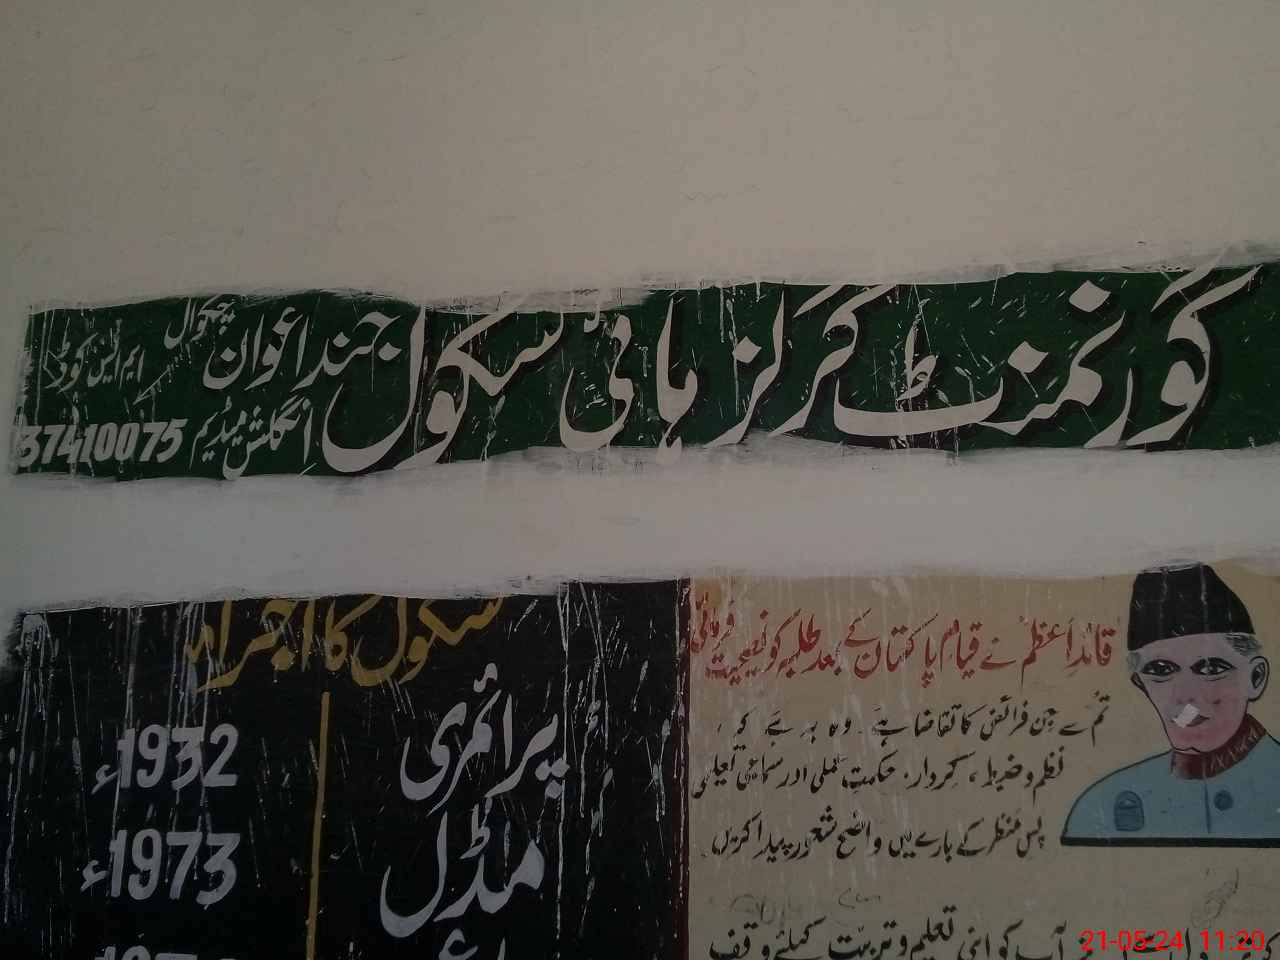 گورنمنٹ گرلز ہائی سکول جنداعوان چکوال
ایم ایس کوڈ
انگلش میڈیم 37410075
سکول کا اجراء
پرائمری 1932ء
مڈل 1973ء
قائداعظم نے قیام پاکستان کے بعد طلبہ کو نصیحت فرمائی
تم سے جن فرائض کا تقاضا ہے۔ وہ یہ ہے کہ،
نظم و ضبط، کردار، حکمت عملی اور سماجی تعلیمی
پس منظر کے بارے میں واضح شعور پیدا کریں۔
آپ کو اپنی تعلیم و تربیت کیلئے وقف
21-05-24 11:20